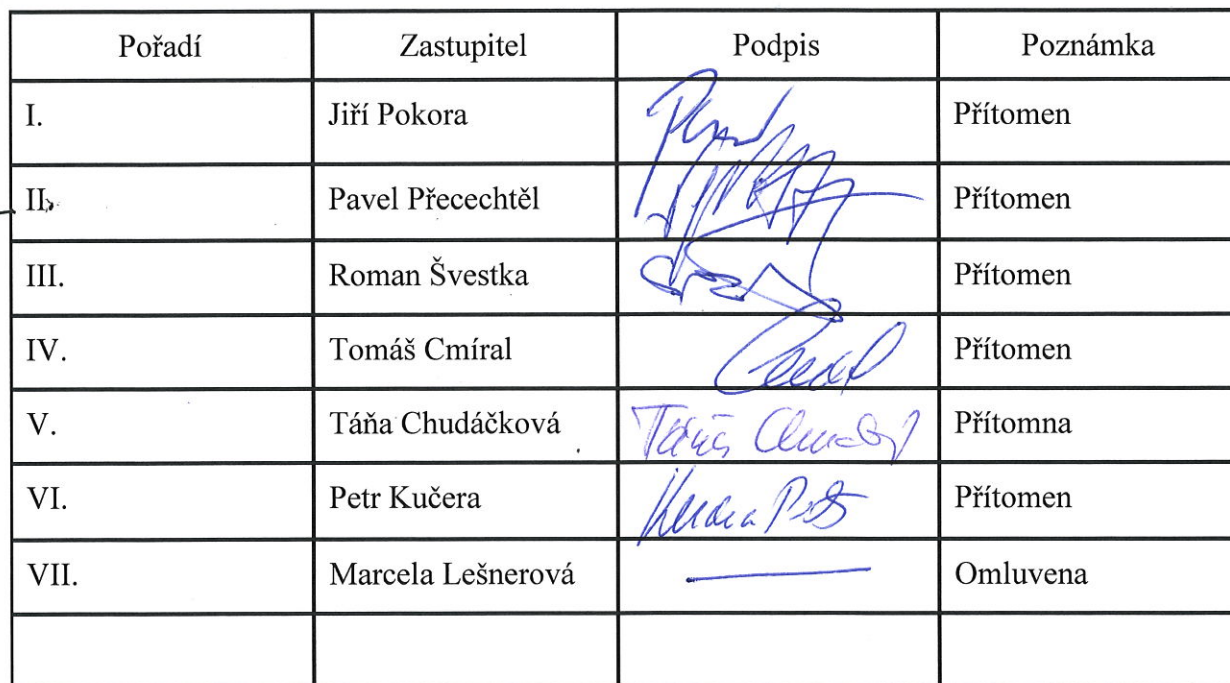 Pořadí Zastupitel Podpis Poznámka
I. Jiří Pokora Přítomen
II. Pavel Přecechtěl Přítomen
III. Roman Švestka Přítomen
IV. Tomáš Cmíral Přítomen
V. Táňa Chudáčková Táňa Přítomna
VI. Petr Kučera Přítomen
VII. Marcela Lešnerová Omluvena